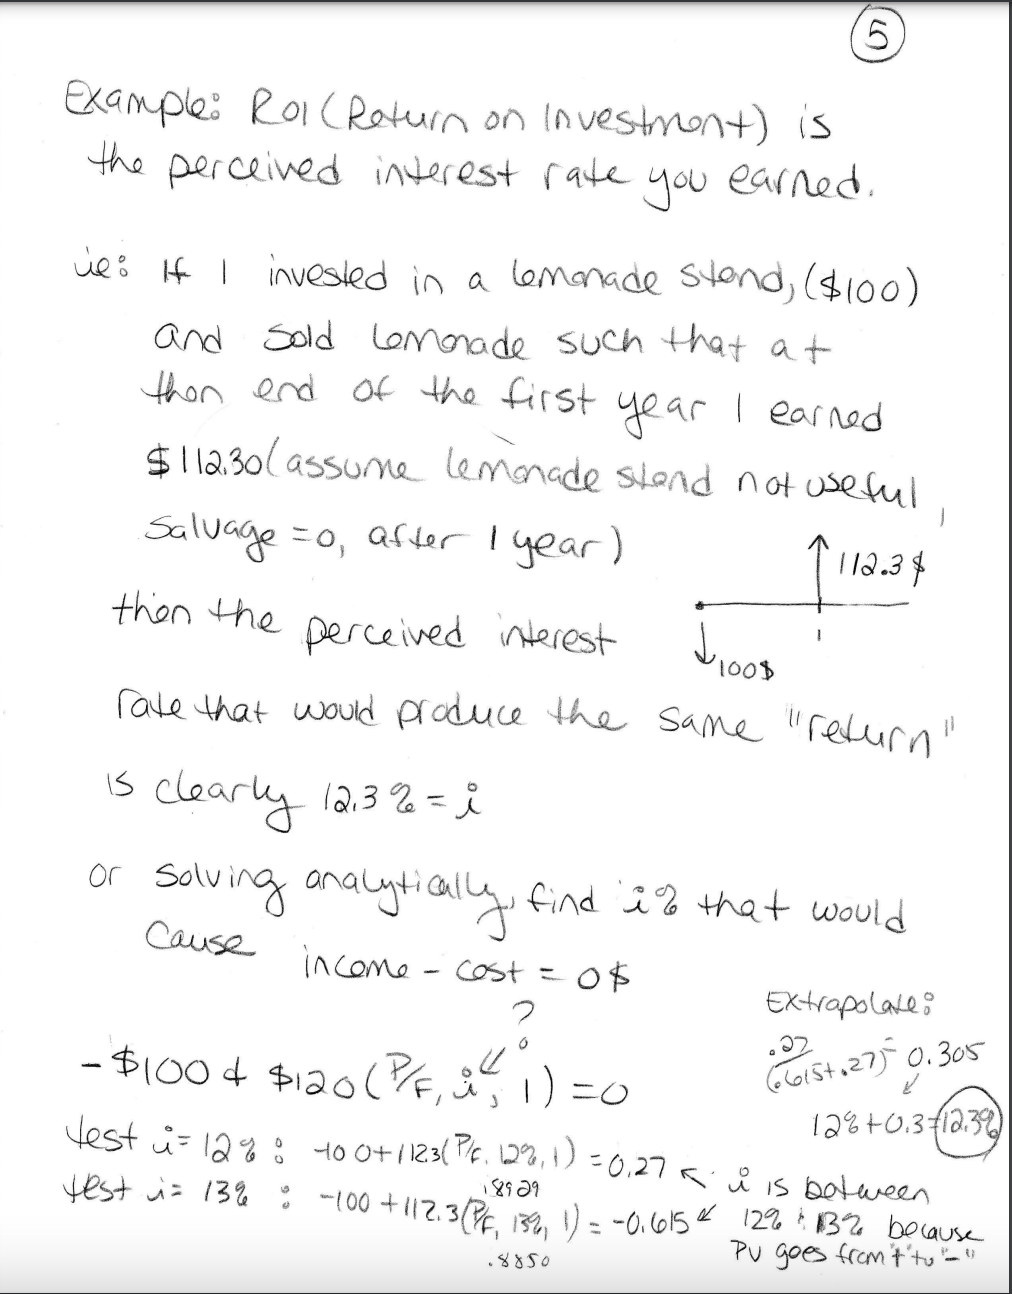 5
Example: ROI (Return on Investment) is
the perceived interest rate you earned.
ie: If I invested in a lemonade stand, ($100)
and sold lemonade such that at
then end of the first year I earned
$112.30 (assume lemonade stand not useful,
salvage = 0, after 1 year)
112.3 $
then the perceived interest
1
100$
rate that would produce the same "return"
is clearly 12.3 % = i
or solving analytically, find i% that would
cause income - cost = 0$
Extrapolate:
?
.27/(.615+.27) = 0.305
-$100 + $120 (P/F, i, 1) = 0
12% + 0.3 = 12.3%
test i = 12% : -100 + 112.3 (P/F, 12%, 1) = 0.27 i is between
.8929
test i = 13% : -100 + 112.3 (P/F, 13%, 1) = -0.615 12% & 13% because
.8850
PV goes from "+" to "-"